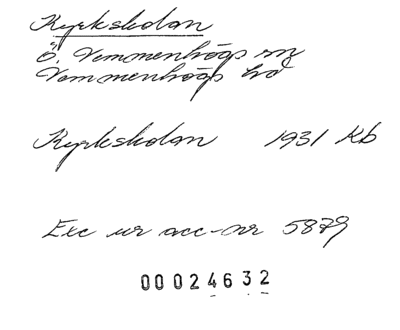 Kyrkskolan
Ö. Vemmenhögs sn
Vemmenhögs hd
Kyrkskolan 1931 Kb
Exc ur acc-nr 5879
00024632